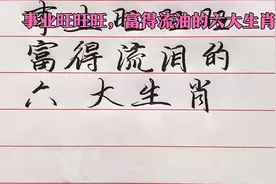 事业旺旺旺，富得流油的六大生肖
富得流泪的
六大生肖